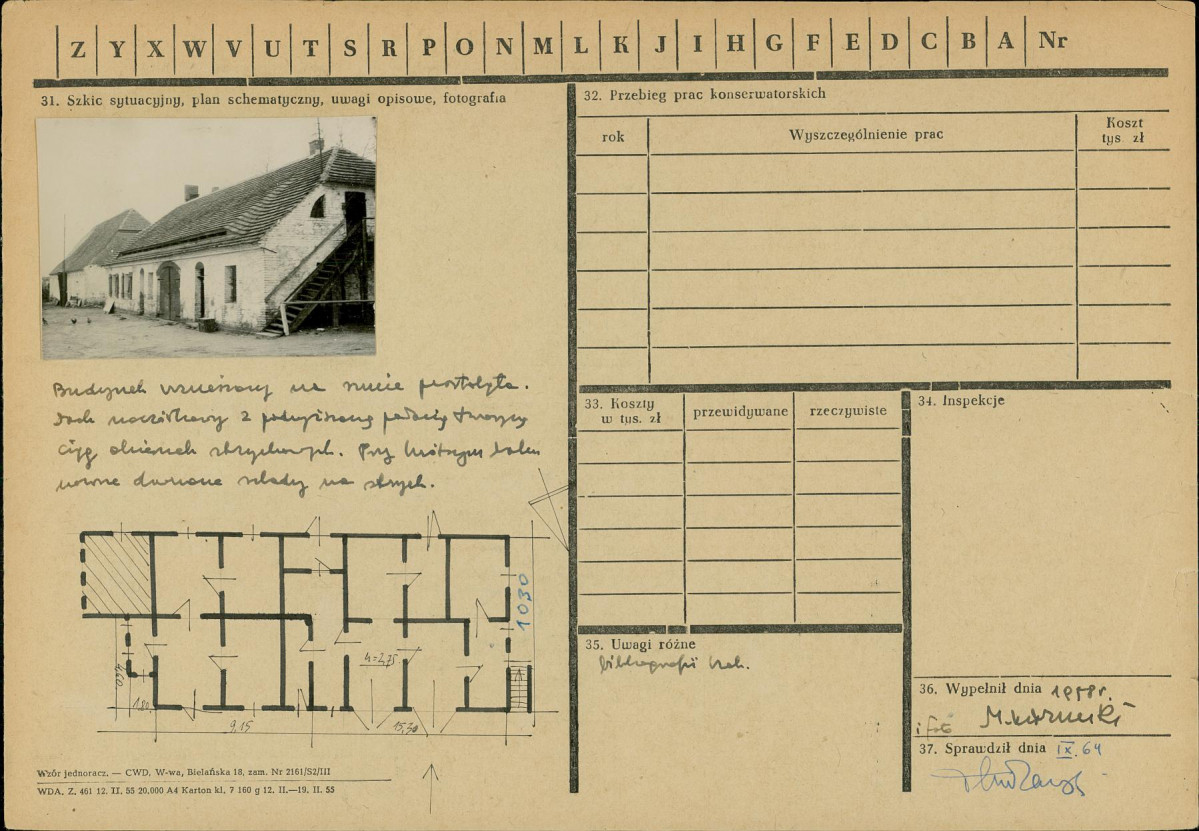 Z Y X W V U T S R P O N M L K J I H G F E D C B A Nr
31. Szkic sytuacyjny, plan schematyczny, uwagi opisowe, fotografia
Budynek wzniesiony na rzucie prostokąta.
Dach naczółkowy z podwyższoną połacią tworzącą
ciąg okienek strychowych. Przy krótszym boku
drewniane schody na strych.
1030
h=2,75
4,60
1,80
9,15
15,30
Wzór jednoracz. — CWD, W-wa, Bielańska 18, zam. Nr 2161/S2/III
WDA. Z. 461 12. II. 55 20,000 A4 Karton kl. 7 160 g 12. II.—19. II. 55
32. Przebieg prac konserwatorskich
rok
Wyszczególnienie prac
Koszt
tys. zł
33. Koszty
w tys. zł
przewidywane
rzeczywiste
34. Inspekcje
35. Uwagi różne
bibliografii brak.
36. Wypełnił dnia 1958r.
i fot.
37. Sprawdził dnia IX.64